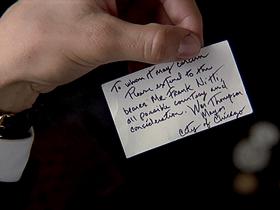 To whom it may concern
Please extend to the
bearer Mr. Frank Nitti,
all possible courtesy and
consideration. Wm. Thompson
Mayor
City of Chicago